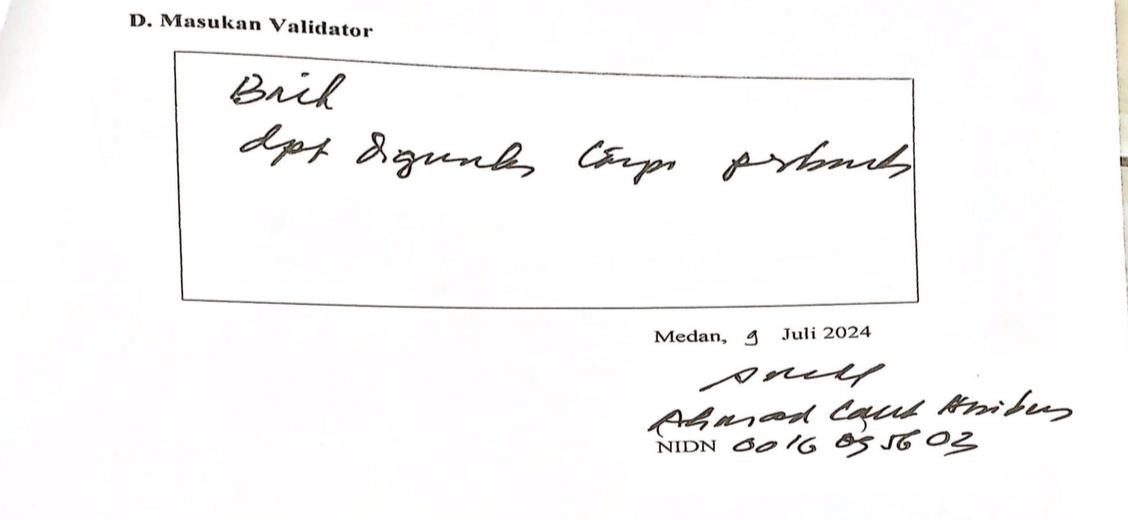 D. Masukan Validator
Baik
dpt digunakan tanpa perbaikan
Medan, 9 Juli 2024
Ahmad Laut Hasibuan
NIDN 0016 05 5603